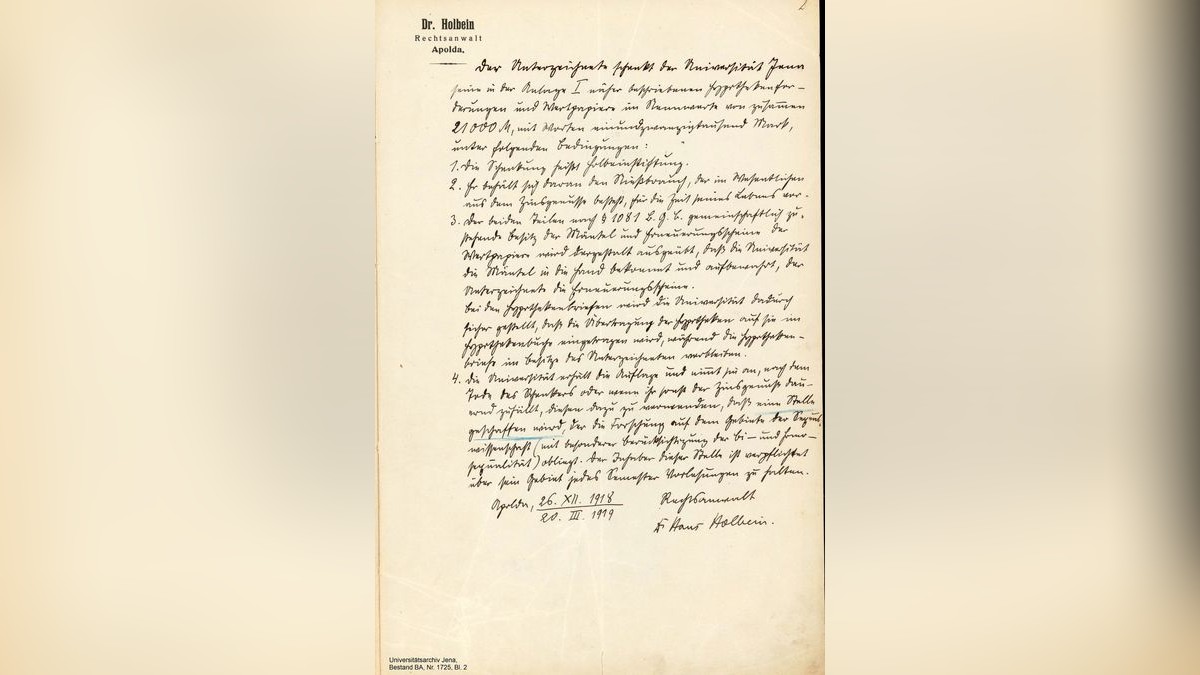 2
Dr. Holbein
Rechtsanwalt
Apolda.
Der Unterzeichnete schenkt der Universität Jena
seine in der Anlage I näher beschriebenen Hypothekenfor-
derungen und Wertpapiere im Nennwerte von zusammen
21000 M, mit Worten einundzwanzigtausend Mark,
unter folgenden Bedingungen:
1. Die Schenkung heißt Holbeinstiftung.
2. Er behält sich daran den Nießbrauch, der im Wesentlichen
aus dem Zinsgenusse besteht, für die Zeit seines Lebens vor.
3. Der beiden Teilen nach § 1081 B. G. B. gemeinschaftlich zu-
stehende Besitz der Mäntel und Erneuerungsscheine der
Wertpapiere wird dergestalt ausgeübt, daß die Universität
die Mäntel in die Hand bekommt und aufbewahrt, der
Unterzeichnete die Erneuerungsscheine.
Bei den Hypothekenbriefen wird die Universität dadurch
sicher gestellt, daß die Übertragung der Hypotheken auf sie im
Hypothekenbuche eingetragen wird, während die Hypotheken-
briefe im Besitze des Unterzeichneten verbleiben.
4. Die Universität erhält die Auflage und nimmt sie an, nach dem
Tode des Schenkers oder wenn ihr sonst der Zinsgenuß dau-
ernd zufällt, diesen dazu zu verwenden, daß eine Stelle
geschaffen wird, der die Forschung auf dem Gebiete der Sexual-
wissenschaft (mit besonderer Berücksichtigung der Bi- und Homo-
sexualität) obliegt. Der Inhaber dieser Stelle ist verpflichtet
über sein Gebiet jedes Semester Vorlesungen zu halten.
Apolda, 26. XII. 1918
20. III. 1919
Rechtsanwalt
Dr Hans Holbein.
Universitätsarchiv Jena,
Bestand BA, Nr. 1725, Bl. 2